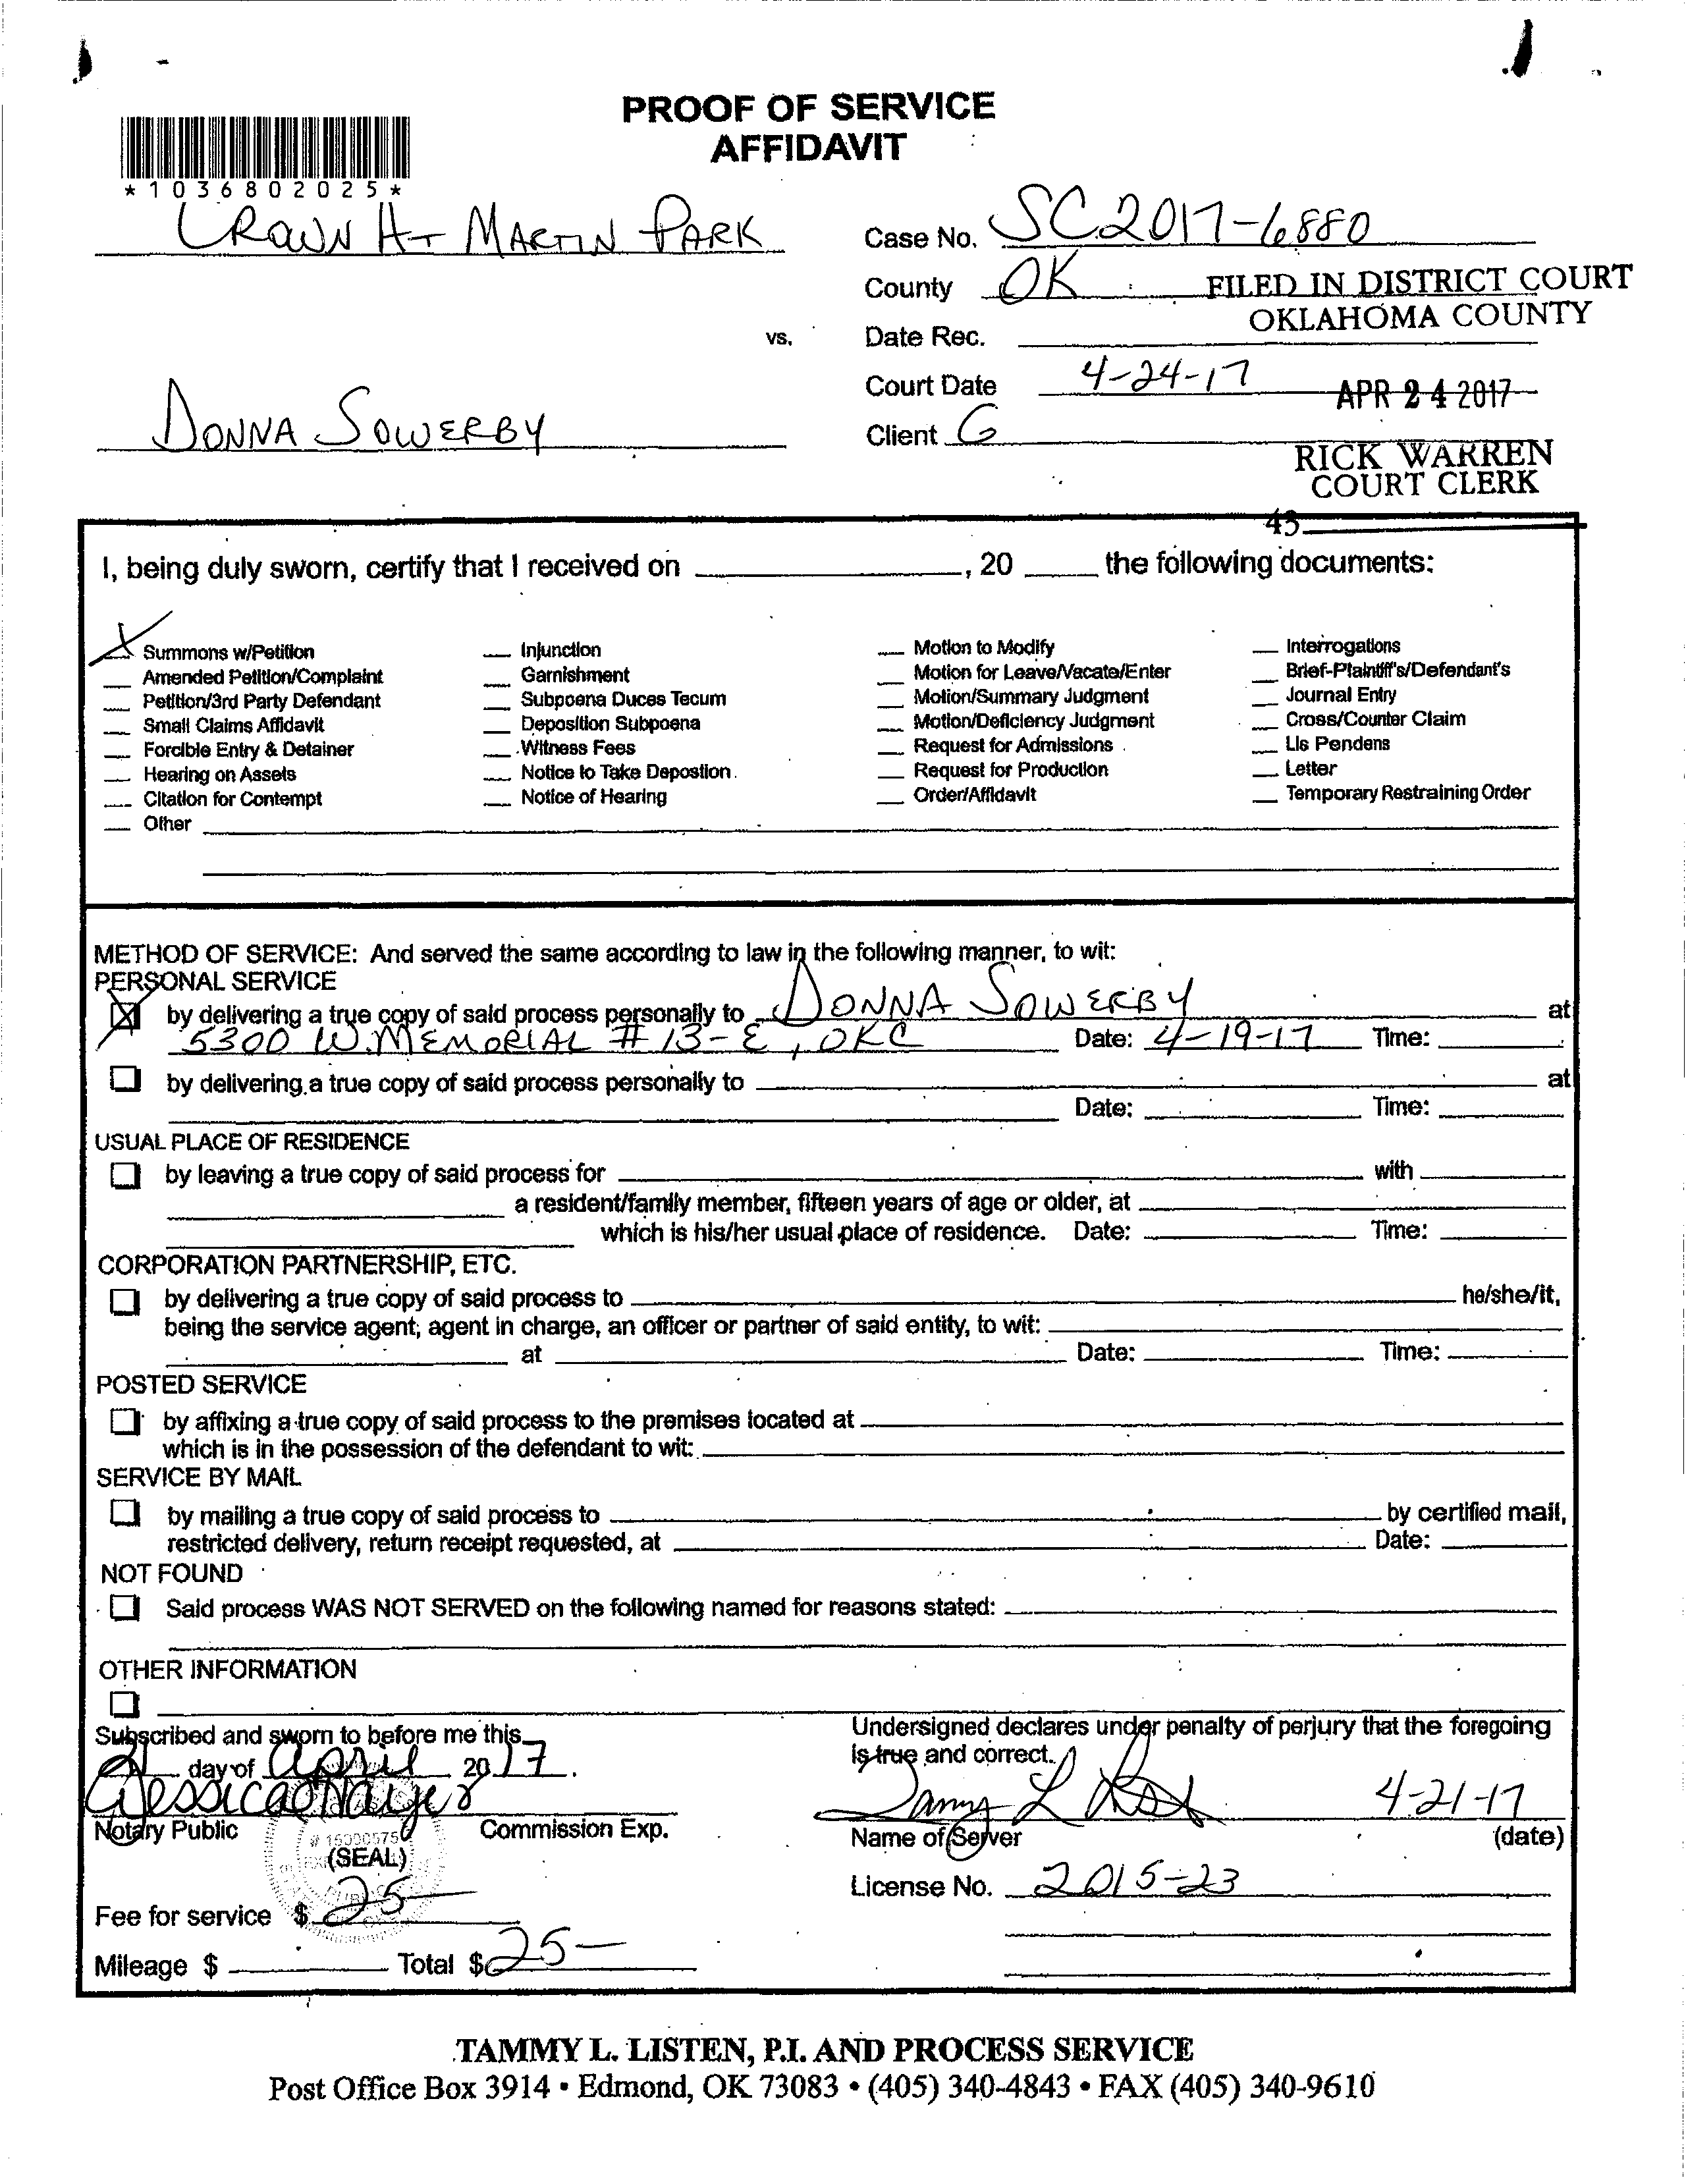 PROOF OF SERVICE
AFFIDAVIT
*1036802025*
CROWN AT MARTIN PARK
vs.
DONNA SOWERBY
Case No. SC2017-6880
County OK
Date Rec.
Court Date 4-24-17
Client G
FILED IN DISTRICT COURT
OKLAHOMA COUNTY
APR 24 2017
RICK WARREN
COURT CLERK
43
I, being duly sworn, certify that I received on ____, 20 ____ the following documents:
X Summons w/Petition
Amended Petition/Complaint
Petition/3rd Party Defendant
Small Claims Affidavit
Forcible Entry & Detainer
Hearing on Assets
Citation for Contempt
Other
Injunction
Garnishment
Subpoena Duces Tecum
Deposition Subpoena
Witness Fees
Notice to Take Depostion
Notice of Hearing
Motion to Modify
Motion for Leave/Vacate/Enter
Motion/Summary Judgment
Motion/Deficiency Judgment
Request for Admissions
Request for Production
Order/Affidavit
Interrogations
Brief-Plaintiff's/Defendant's
Journal Entry
Cross/Counter Claim
Lis Pendens
Letter
Temporary Restraining Order
METHOD OF SERVICE: And served the same according to law in the following manner, to wit:
PERSONAL SERVICE
by delivering a true copy of said process personally to DONNA SOWERBY at
5300 W. MEMORIAL # 13-E, OKC Date: 4-19-17 Time:
by delivering a true copy of said process personally to at
Date: Time:
USUAL PLACE OF RESIDENCE
by leaving a true copy of said process for with
a resident/family member, fifteen years of age or older, at
which is his/her usual place of residence. Date: Time:
CORPORATION PARTNERSHIP, ETC.
by delivering a true copy of said process to he/she/it,
being the service agent, agent in charge, an officer or partner of said entity, to wit:
at Date: Time:
POSTED SERVICE
by affixing a true copy of said process to the premises located at
which is in the possession of the defendant to wit:
SERVICE BY MAIL
by mailing a true copy of said process to by certified mail,
restricted delivery, return receipt requested, at Date:
NOT FOUND
Said process WAS NOT SERVED on the following named for reasons stated:
OTHER INFORMATION
Subscribed and sworn to before me this
21 day of April 2017.
Jessica
Notary Public Commission Exp.
# 15000575
(SEAL)
Fee for service $ 25-
Mileage $ Total $ 25-
Undersigned declares under penalty of perjury that the foregoing
is true and correct.
Tammy L 4-21-17
Name of Server (date)
License No. 2015-23
TAMMY L. LISTEN, P.I. AND PROCESS SERVICE
Post Office Box 3914 • Edmond, OK 73083 • (405) 340-4843 • FAX (405) 340-9610